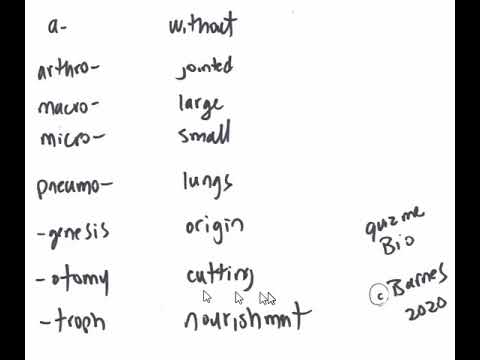 a- without
arthro- jointed
macro- large
micro- small
pneumo- lungs
-genesis origin
-otomy cutting
-troph nourishmnt
quizme
Bio
© Barnes
2020